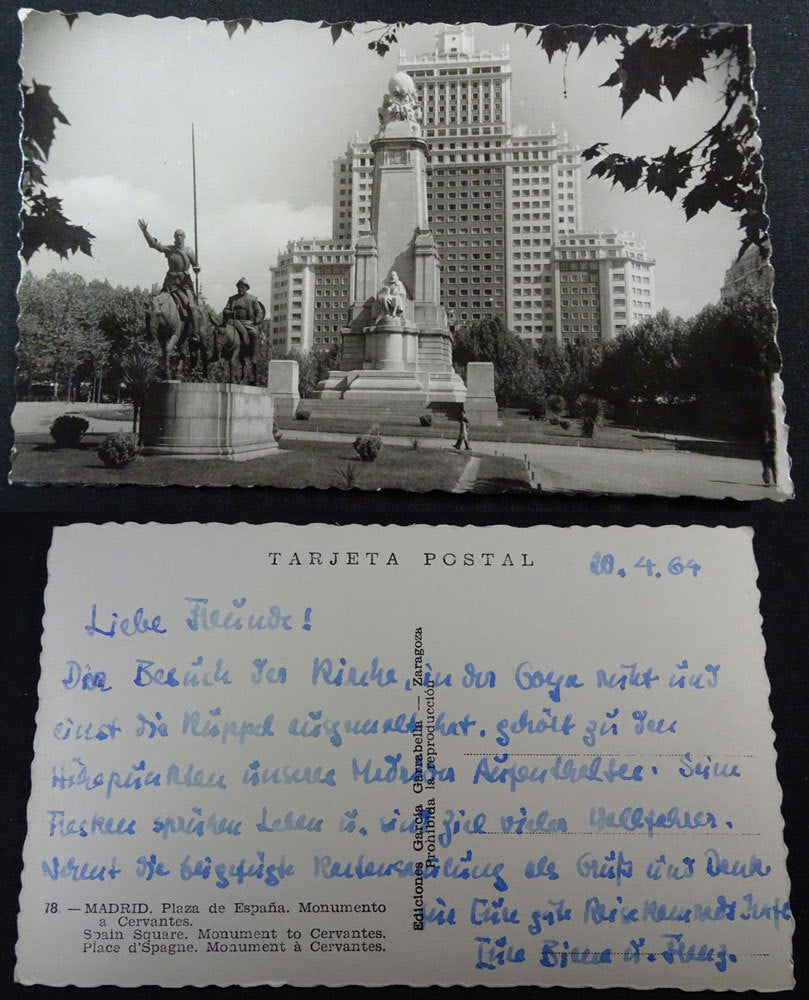 TARJETA POSTAL
20.4.64
Liebe Freunde!
Der Besuch der Kirche, in der Goya ruht und
einst die Kuppel ausgemalt hat, gehört zu den
Höhepunkten unseres Madrider Aufenthaltes. Seine
Fresken sprühen Leben u. sind Ziel vieler Wallfahrer.
Nehmt die beigefügte Kartensammlung als Gruß und Dank
für Eure gute Reisekameradschaft
Eure u.
Ediciones García Garrabella — Zaragoza
Prohibida la reproducción
78. — MADRID. Plaza de España. Monumento
a Cervantes.
Spain Square. Monument to Cervantes.
Place d'Spagne. Monument à Cervantes.